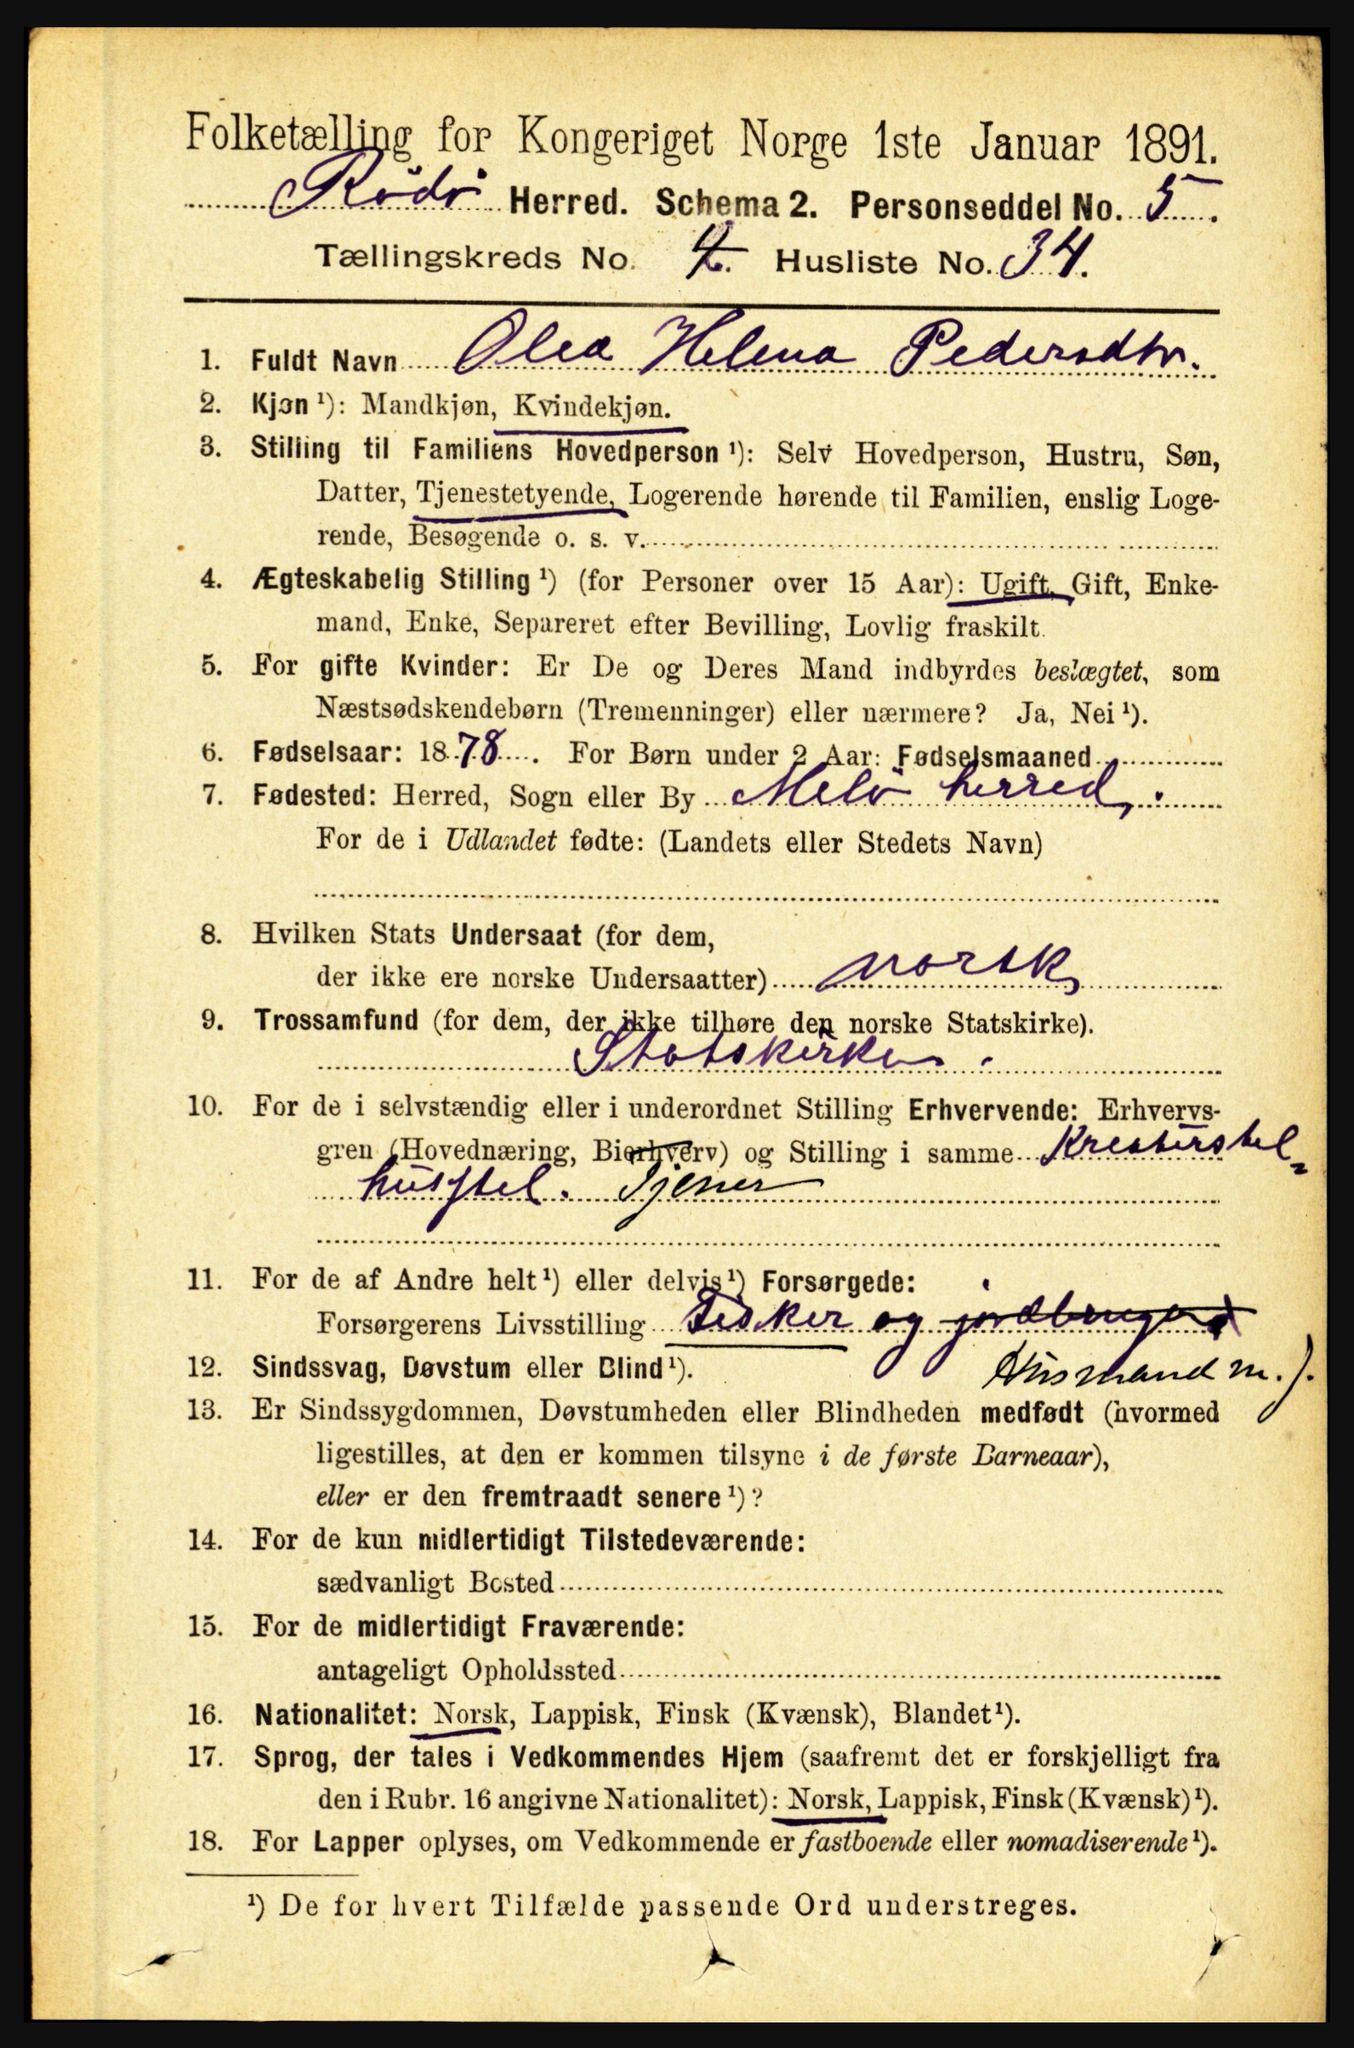 Folketælling for Kongeriget Norge 1ste Januar 1891.
Rödö Herred. Schema 2. Personseddel No. 5.
Tællingskreds No. 4. Husliste No. 34.
1. Fuldt Navn Olea Helena Pedersdtr.
2. Kjøn ¹): Mandkjøn, Kvindekjøn.
3. Stilling til Familiens Hovedperson ¹): Selv Hovedperson, Hustru, Søn,
Datter, Tjenestetyende, Logerende hørende til Familien, enslig Loge-
rende, Besøgende o. s. v.
4. Ægteskabelig Stilling ¹) (for Personer over 15 Aar): Ugift, Gift, Enke-
mand, Enke, Separeret efter Bevilling, Lovlig fraskilt.
5. For gifte Kvinder: Er De og Deres Mand indbyrdes beslægtet, som
Næstsødskendebørn (Tremenninger) eller nærmere? Ja, Nei ¹).
6. Fødselsaar: 1878. For Børn under 2 Aar: Fødselsmaaned
7. Fødested: Herred, Sogn eller By Melö herred.
For de i Udlandet fødte: (Landets eller Stedets Navn)
8. Hvilken Stats Undersaat (for dem,
der ikke ere norske Undersaatter) norsk
9. Trossamfund (for dem, der ikke tilhøre den norske Statskirke).
Statskirken.
10. For de i selvstændig eller i underordnet Stilling Erhvervende: Erhvervs-
gren (Hovednæring, Bierhverv) og Stilling i samme Kreaturstel
husstel. Tjener
11. For de af Andre helt ¹) eller delvis ¹) Forsørgede:
Forsørgerens Livsstilling Fisker og jordbruger
Husmand m. J.
12. Sindssvag, Døvstum eller Blind ¹).
13. Er Sindssygdommen, Døvstumheden eller Blindheden medfødt (hvormed
ligestilles, at den er kommen tilsyne i de første Barneaar),
eller er den fremtraadt senere ¹)?
14. For de kun midlertidigt Tilstedeværende:
sædvanligt Bosted
15. For de midlertidigt Fraværende:
antageligt Opholdssted
16. Nationalitet: Norsk, Lappisk, Finsk (Kvænsk), Blandet ¹).
17. Sprog, der tales i Vedkommendes Hjem (saafremt det er forskjelligt fra
den i Rubr. 16 angivne Nationalitet): Norsk, Lappisk, Finsk (Kvænsk) ¹).
18. For Lapper oplyses, om Vedkommende er fastboende eller nomadiserende ¹).
¹) De for hvert Tilfælde passende Ord understreges.